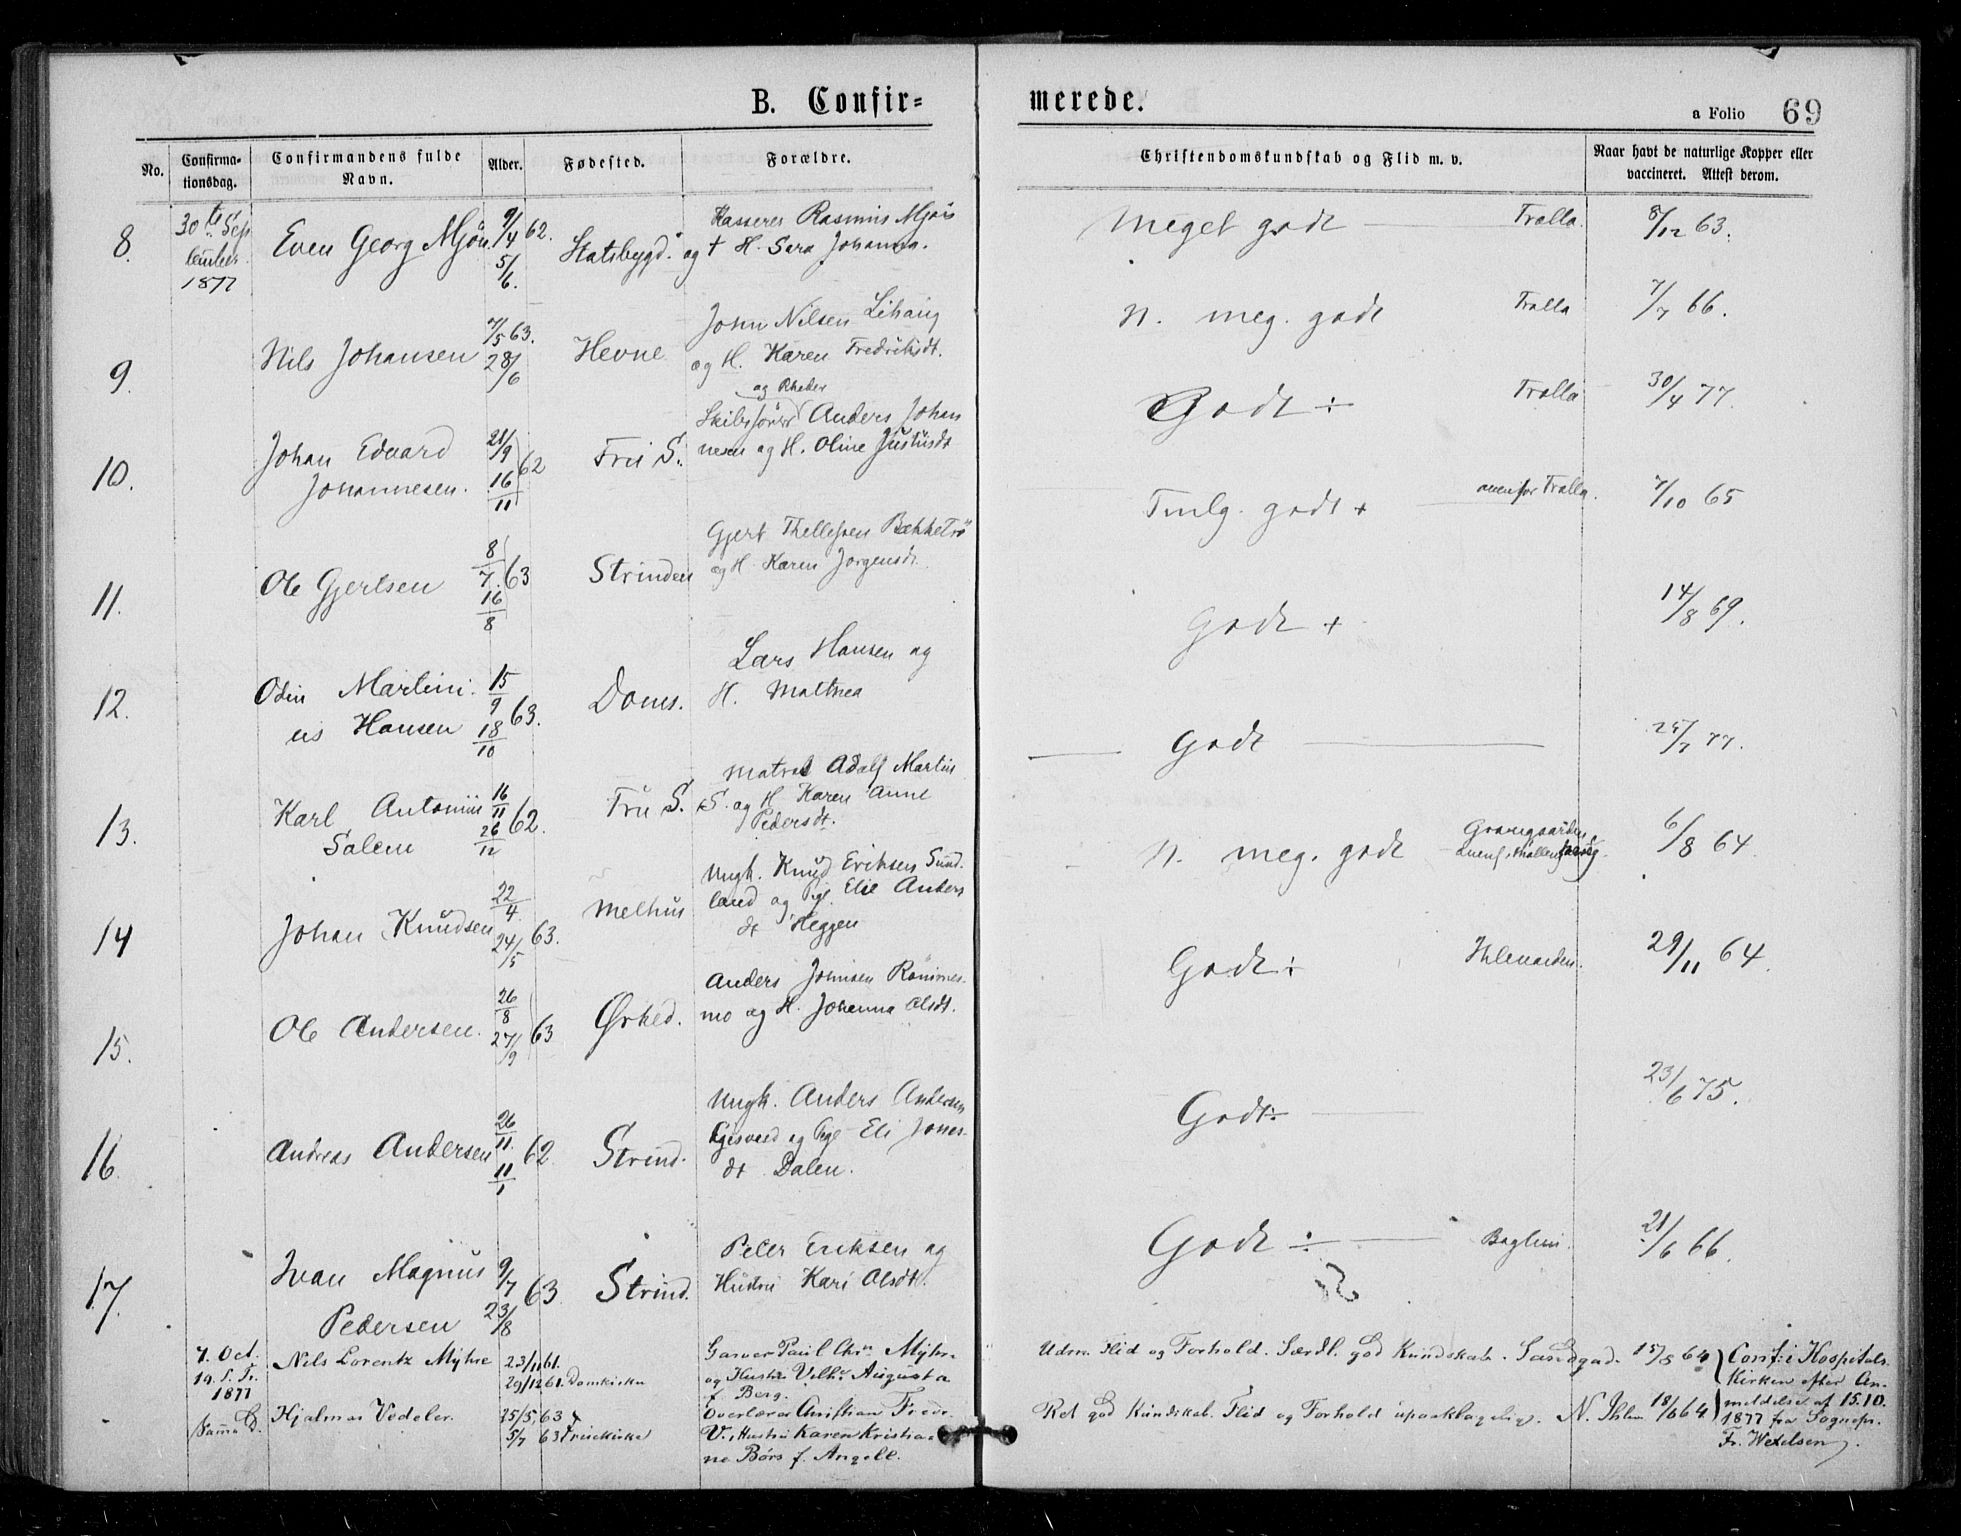 B. Confir=
merede.
a Folio 69
No.
Confirma-
tionsdag.
Confirmandens fulde
Navn.
Alder.
Fødested.
Forældre.
Christendomskundskab og Flid m. v.
Naar havt de naturlige Kopper eller
vaccineret. Attest derom.
8.
30te Sep
tember
1877
Even Georg Mjön
9/4 62.
5/6.
Statsbygd.
Kasserer Rasmus Mjöis
og † H. Sara Johanna.
Meget godt
Trolla.
8/12 63.
9.
Nils Johansen
7/5 63.
28/6
Hevne
John Nilsen Lihaug
og H. Karen Fredriksdt.
N. meg. godt
Trolla
7/7 66.
10.
Johan Edvard
Johannesen.
21/9
16/11 62
Frü S.
og Rheder
Skibsförer Anders Johan
nesen og H. Oline Justüsdt
Godt ÷
Trolla
30/4 77.
11.
Ole Gjertsen
8/7 63
16/8
Strinden
Gjert Thellefsen Bækketrö
og H. Karen Jorgensdt.
Tmlg. godt +
ovenfor Trolla.
7/10 65
12.
Odin Martini
us Hansen
15/9
18/10 63.
Doms.
Lars Hansen og
H. Mattnea
Godt +
14/8 69.
13.
Karl Antonius
Salem
16/11
26/12 62.
Frü S.
Matros Adolf Martin
S. og H. Karen Anne
Pedersdt.
Godt
25/7 77.
14
Johan Knudsen
22/4
24/5 63.
Melhus
Ungk. Knud Eriksen Sund.
land og Pge. Elie Anders
dt Heggen
N. meg. godt
6/8 64.
15.
Ole Andersen.
26/8
27/9 63
Ørked.
Anders Johnsen Rönimes-
mo og H. Johanna Olsdt.
Godt ÷
Ihlevarden.
29/11 64.
16.
Andreas Andersen
26/11.
11/1 62
Strind.
Ungk. Anders Andersen
og Pge Eli Jones-
dt Dalen.
Godt ÷
23/6 75.
17.
Ivan Magnus
Pedersen
9/7
23/8 63
Strind.
Peter Eriksen og
Hustru Kari Olsdt.
Godt ÷
Baglun.
21/6 66.
7. Oct.
19. S. Tr.
1877
Nils Lorentz Myhre
23/11 61.
29/12 61. Domkirken
Garver Paul Chr. Myhre
og Hustru Vilhe Augusta
f. Berg.
Udm. Flid og Forhold. Særdl. god Kundskab. Sandgad. 15/8 64
Samme D.
Hjalmar Vedeler.
25/5 63
5/7 63 Fruekirke
Overlærer Christian Fredr.
V., Hustru Karen Kristia-
ne Børs f. Angell.
Ret god Kundskab. Flid og Forhold upaaklagelig. N. Ihlen 18/6 64
Conf. i Hospitals-
Kirken efter An-
meldelse af 15.10.
1877 fra Sognepr.
Fr. Wexelsen.